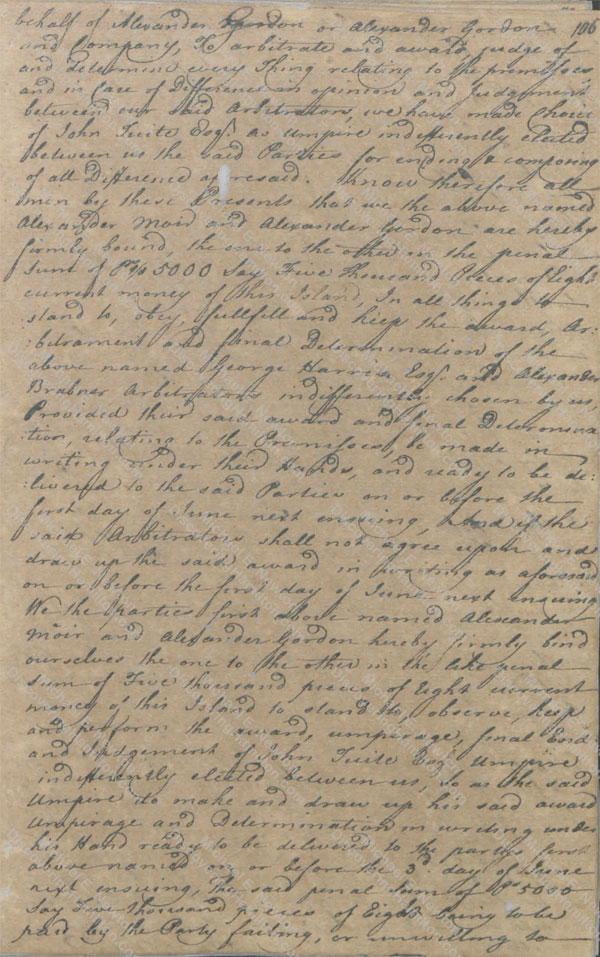 behalf of Alexander Gordon or Alexander Gordon 106
and Company, To arbitrate and award, judge of
and determine every Thing relating to the premisses
and in Case of Difference in opinion and Judgement
between our said Arbitrators, we have made Choice
of John Tuite Esqr. as Umpire indifferently elected
between us the said Parties for ending & composing
of all Difference aforesaid. Know therefore all
men by these Presents that we the above named
Alexander Moir and Alexander Gordon are hereby
firmly bound, the one to the other in the penal
Sum of Ps 5000 Say Five thousand Pieces of Eight
current money of this Island, In all things to
stand to, obey, fullfill and keep the award, Ar=
:bitrament and final Determination of the
above named George Harris Esqr. and Alexander
Brabner Arbitrators indifferently chosen by us,
Provided their said award and final Determina
:tion, relating to the Premisses, be made in
writing under their Hands, and ready to be de:
:livered to the said Parties on or before the
first day of June next ensuing, And if the
said Arbitrators shall not agree upon and
draw up the said award in writing as aforesaid
on or before the first day of June next ensuing
We the parties first above named Alexander
Moir and Alexander Gordon hereby firmly bind
ourselves the one to the other in the like penal
Sum of Five thousand pieces of Eight current
money of this Island to stand to, observe, keep
and perform the award, umpirage, final End
and Judgement of John Tuite Esqr. Umpire
indifferently elected between us, so as the said
Umpire do make and draw up his said award
Umpirage and Determination in writing under
his Hand ready to be delivered to the partys first
above named on or before the 3d. day of June
next ensuing, The said penal Sum of Ps 5000
Say Five thousand pieces of Eight being to be
paid by the Party failing, or unwilling to